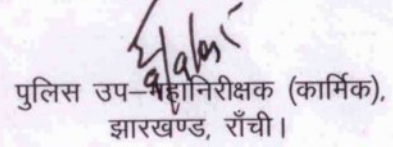 पुलिस उप–महानिरीक्षक (कार्मिक),
झारखण्ड, राँची।